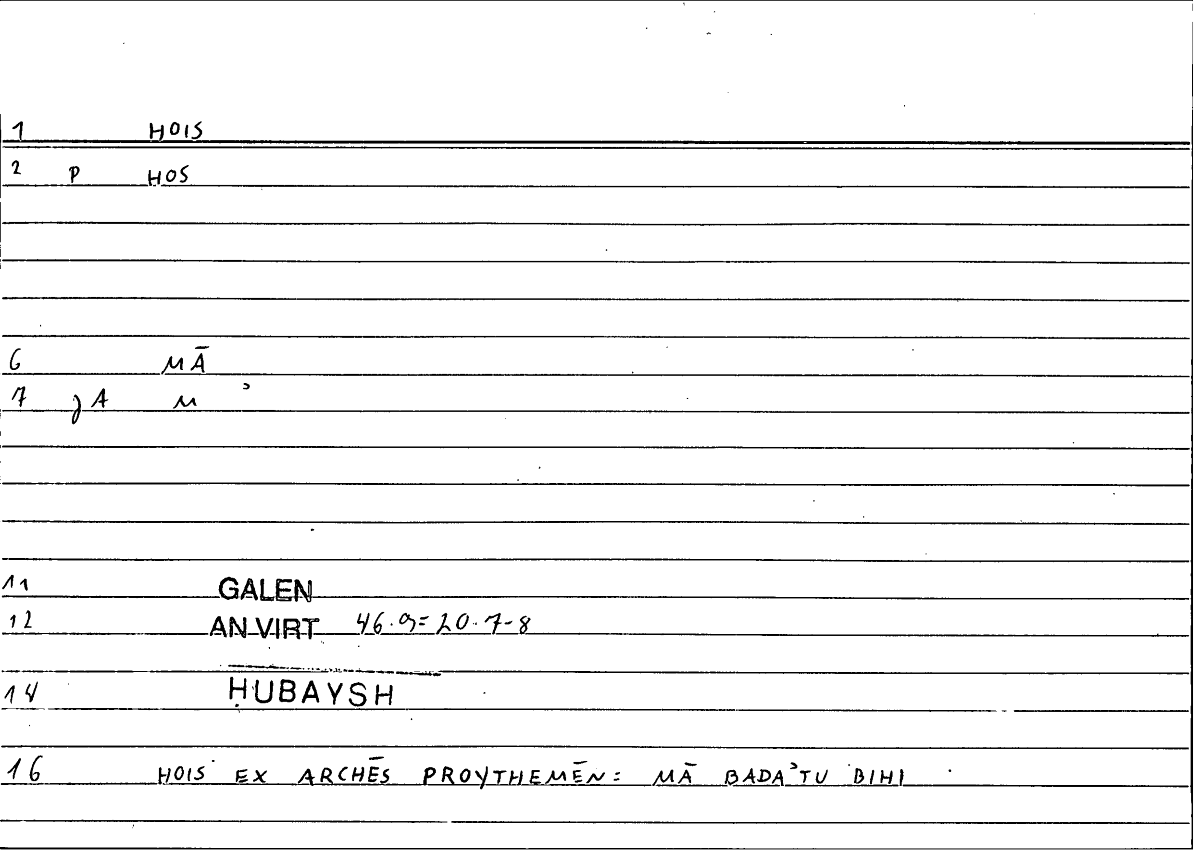 1 HOIS
2 P HOS
6 MĀ
7 JA M ʾ
11 GALEN
12 AN VIRT 46.9=20.7-8
14 ḤUBAYSH
16 HOIS EX ARCHĒS PROYTHEMĒN: MĀ BADAʾTU BIHI